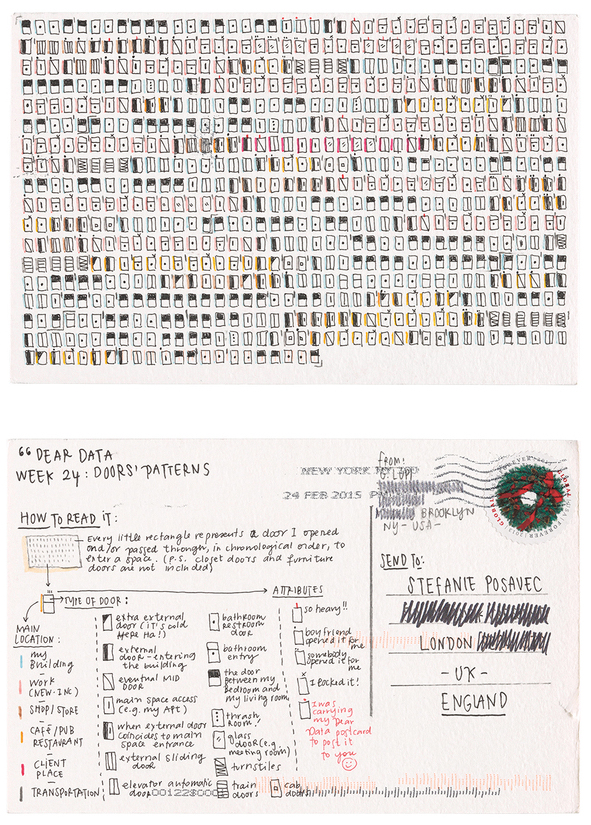 “ DEAR DATA
WEEK 24: DOORS' PATTERNS
HOW TO READ IT:
Every little rectangle represents a door I opened
and/or passed through, in chronological order, to
enter a space. (p.s. closet doors and furniture
doors are not included)
TYPE OF DOOR:
MAIN
LOCATION:
my
Building
WORK
(NEW-INC)
SHOP/STORE
CAFÉ/PUB
RESTAURANT
CLIENT
PLACE
TRANSPORTATION
extra external
door (it's cold
HERE Ha!)
external
door - entering
the building
eventual MID
DOOR
main space access
(e.g. my APT)
when external door
coincides to main
space entrance
external sliding
door
elevator automatic
door
bathroom
restroom
door
bathroom
entry
the door
between my
Bedroom and
my living room
thrash
room!
glass
door (e.g.
meeting room)
turnstiles
train
doors
cab
doors
ATTRIBUTES
so heavy!!
boyfriend
opened it for
me
somebody
opened it for
me
I locked it!
I was
carrying
my Dear
Data postcard
to post it
to you
001223000
NEW YORK NY 100
24 FEB 2015 PM
FROM:
G. LUPI
BROOKLYN
NY - USA -
FOREVER
GLOBAL
SEND TO:
STEFANIE POSAVEC
LONDON
- UK -
ENGLAND